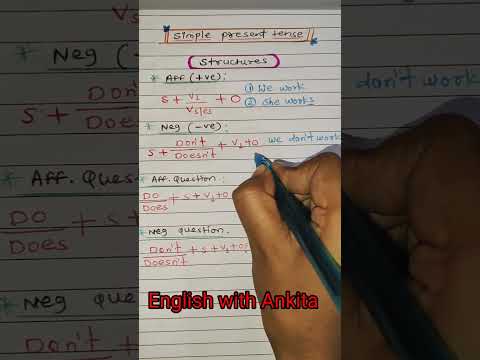 Simple present tense
Structures
* Aff (+ve):
S + V1/Vs/es + O
① We work
② She works
* Neg (-ve):
S + Don't/Doesn't + V1 + O
we don't work
* Aff. Question:
Do/Does + S + V1 + O
* Neg question.
Don't/Doesn't + S + V1 + O?
English with Ankita
* Neg (
S + Don't/Doesn't
Aff. Ques
Do/Does + S
* Neg que
Don't
don't work